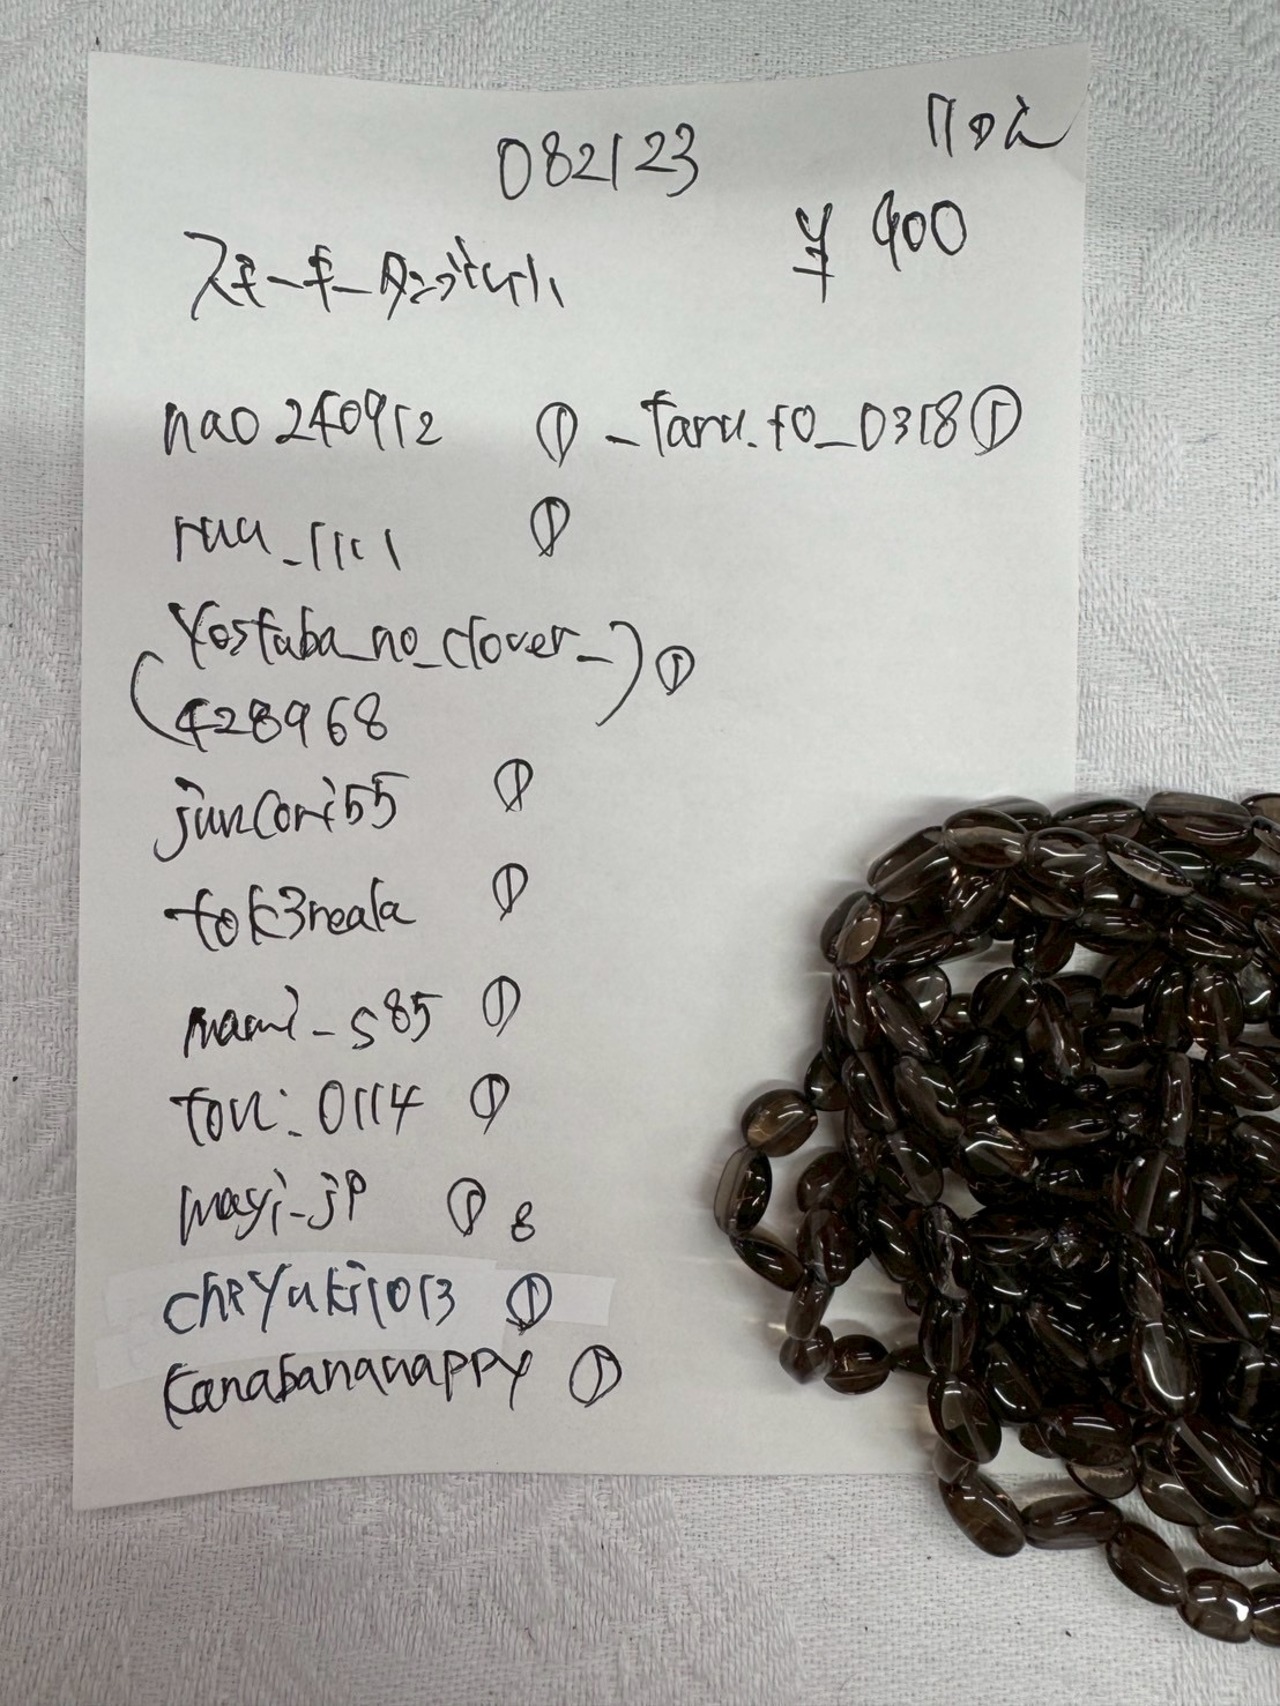 082123
¥ 900
スモーキータンブル小
nao240912 ① _taru.to_0318 ①
ruu_1101 ①
(yostuba_no_clover_
428968) ①
juncori55 ①
tok3reala ①
mami_s85 ①
tou:_0114 ①
mayi_jp ① 8
chiryuki1013 ①
kanabananappy ①